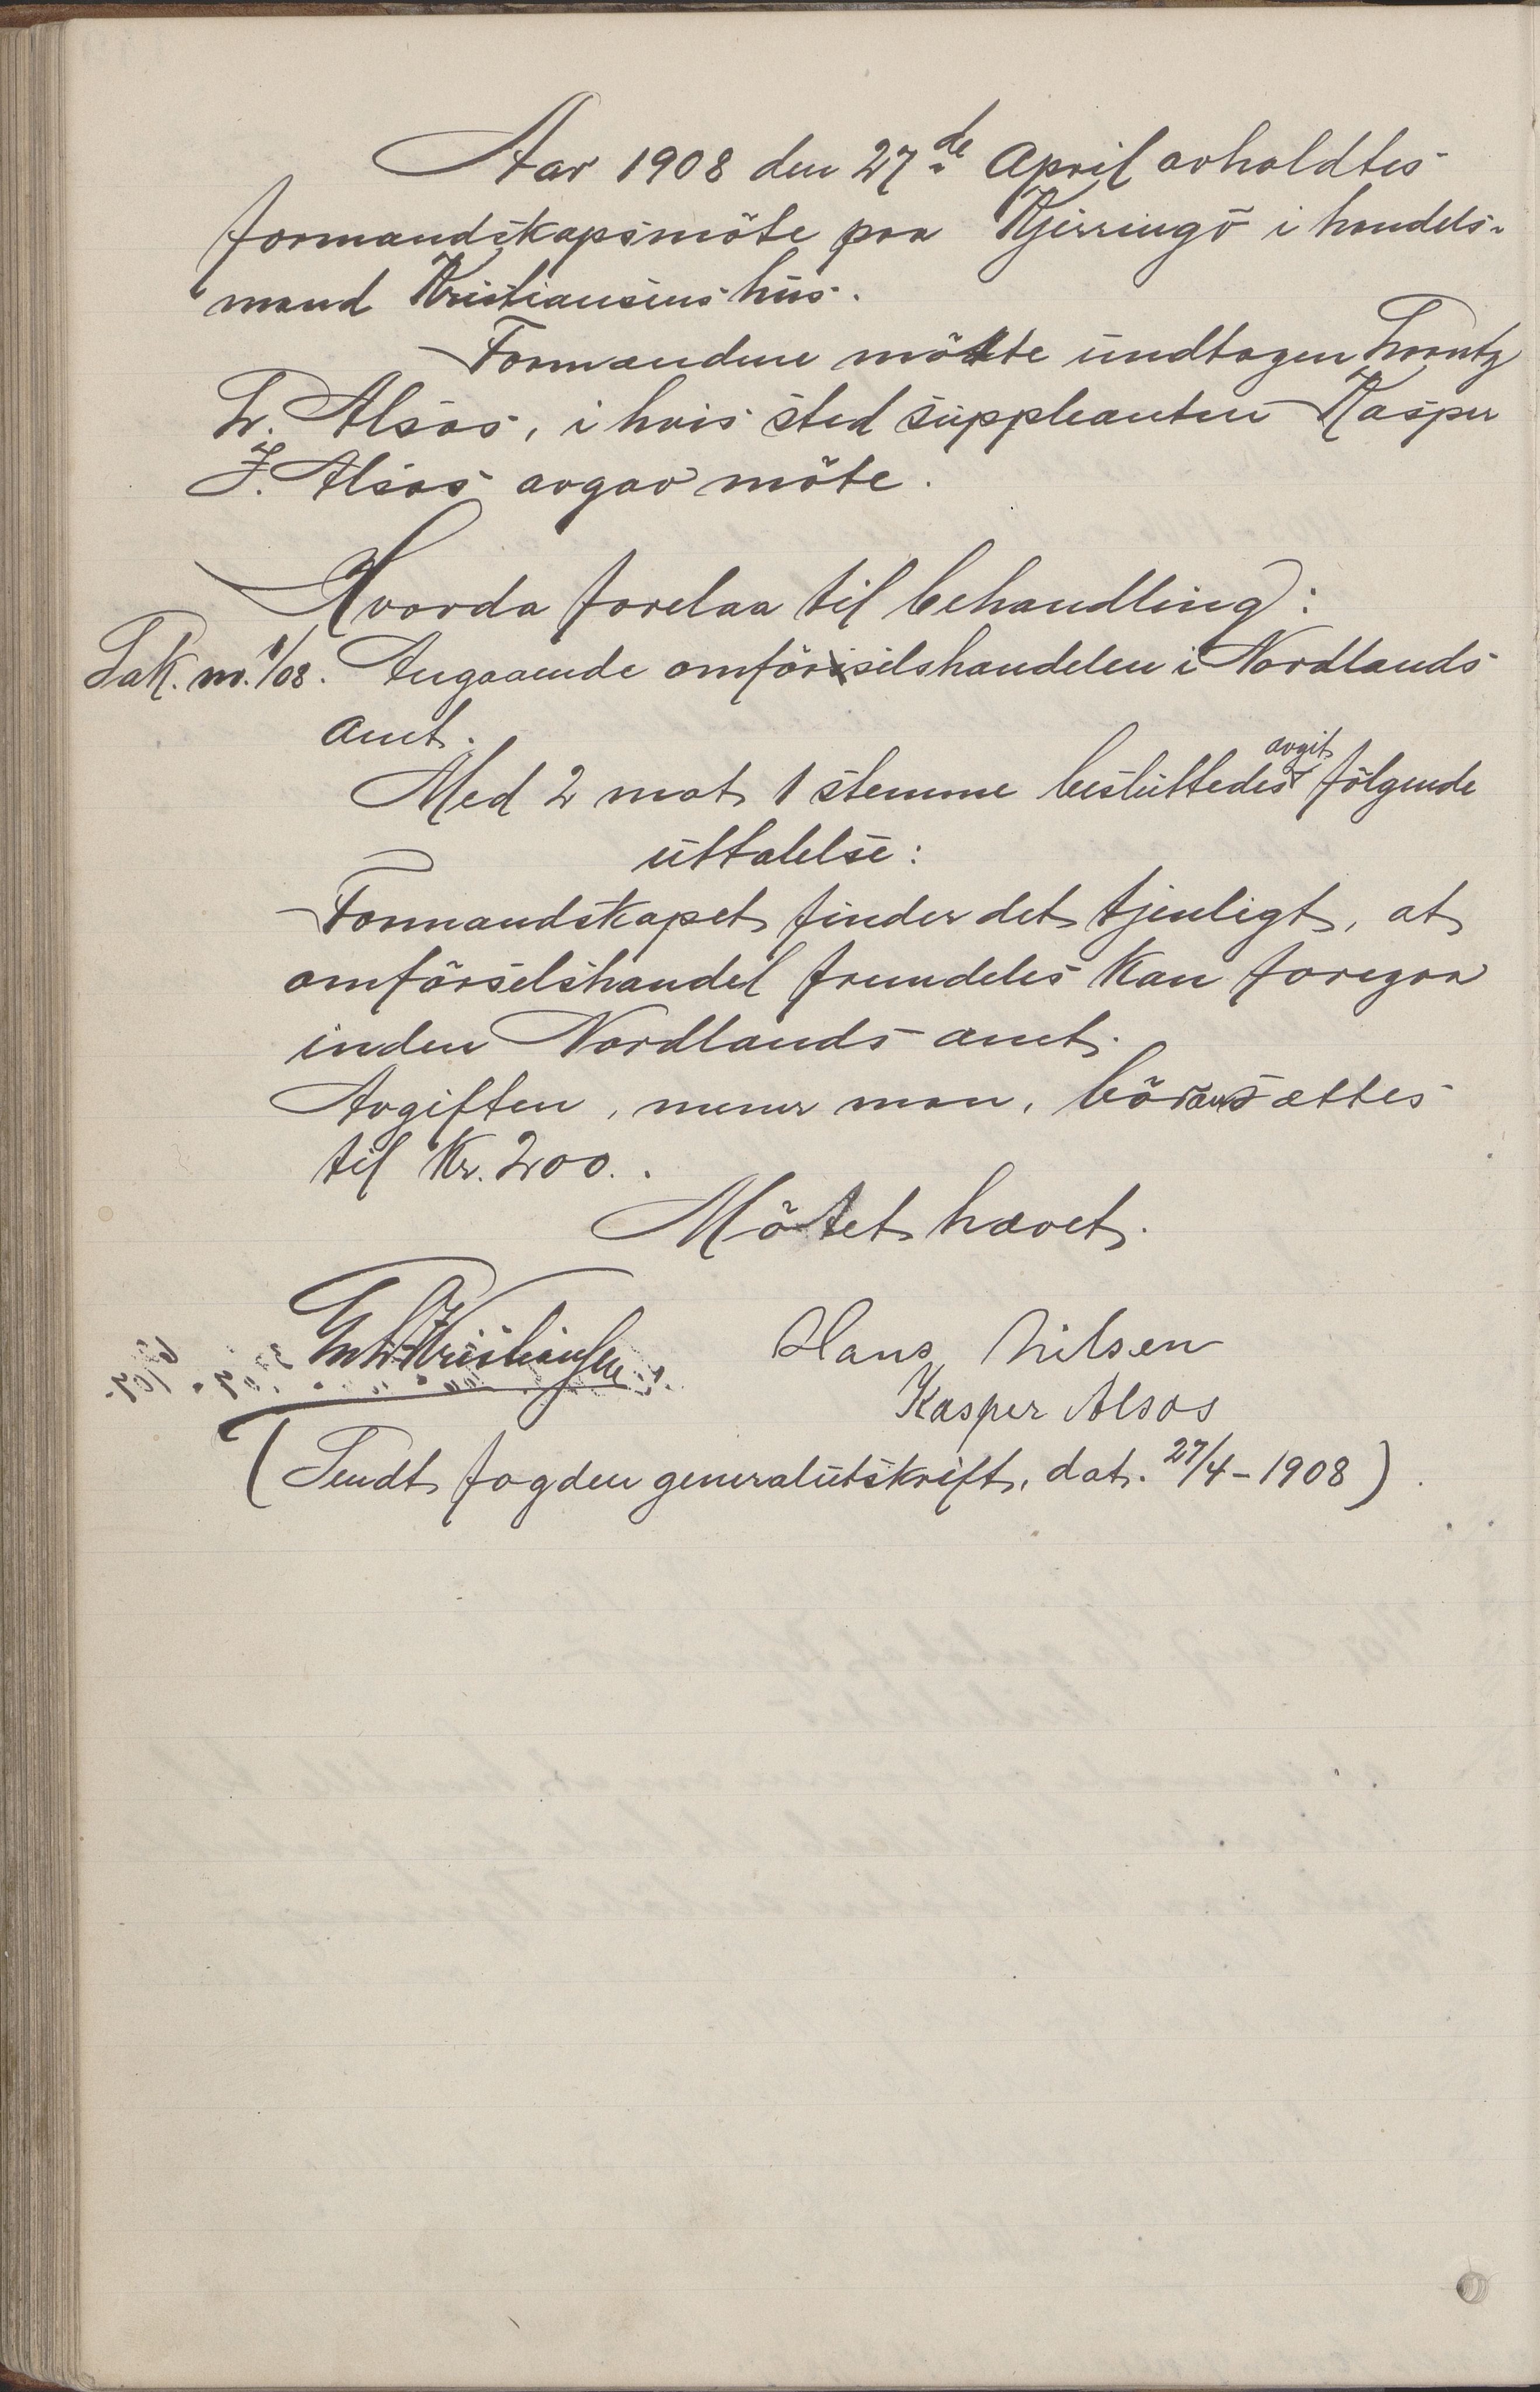 Aar 1908 den 27de April avholdtes
formandskapsmöte paa Kjerringö i handels-
mand Kristiansens hus.
Formændene mötte undtagen Lorentz
L. Alsos, i hvis sted suppleanten Kasper
J. Alsos avgav möte.
Hvorda forelaa til behandling:
Sak. nr. 1/08. Angaaende omförselshandelen i Nordlands
amt.
Med 2 mot 1 stemme besluttedes avgit følgende
uttalelse:
Formandskapet finder det tjenligt, at
omförselshandel fremdeles kan foregaa
inden Nordlands amt.
Avgiften, mener man, bör ansættes
til Kr. 200..
Mötet hævet.
Kristiansen Hans Nilsen
Kasper Alsos
(Sendt fogden generalutskrift, dat. 27/4-1908).